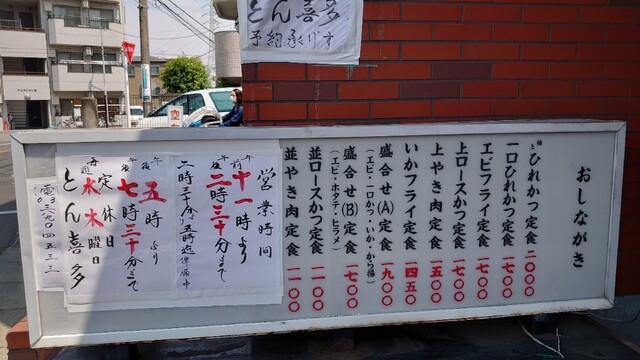 とん喜多
予約承ります
おしながき
上ひれかつ定食 二〇〇〇
一口ひれかつ定食 一七〇〇
エビフライ定食 一七〇〇
上ロースかつ定食 一七〇〇
上やき肉定食 一五〇〇
いかフライ定食 一四五〇
盛合せ(A)定食 一九〇〇
(エビ・一口かつ・いか・から揚)
盛合せ(B)定食 一七〇〇
(エビ・ホタテ・ヒラメ)
並ロースかつ定食 一一〇〇
並やき肉定食 一一〇〇
営業時間
午前十一時より
午後二時三十分まで
二時三十分〜五時迄準備中
午後五時より
午後七時三十分まで
定休日
毎週水木曜日
とん喜多